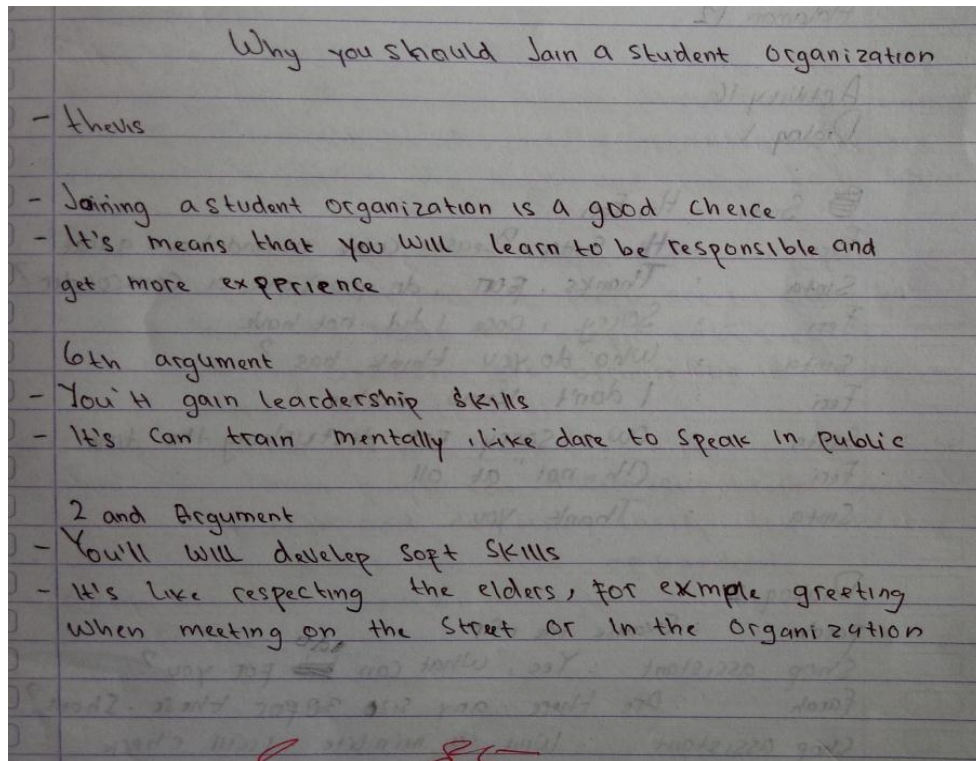 Why you should Join a student organization
- thesis
- Joining a student organization is a good choice
- It's means that you will learn to be responsible and
get more experience
6th argument
- You'll gain leardership skills
- It's can train mentally, like dare to speak in public
2 and Argument
- You'll will develop soft skills
- It's like respecting the elders, for exmple greeting
when meeting on the street or in the organization
85